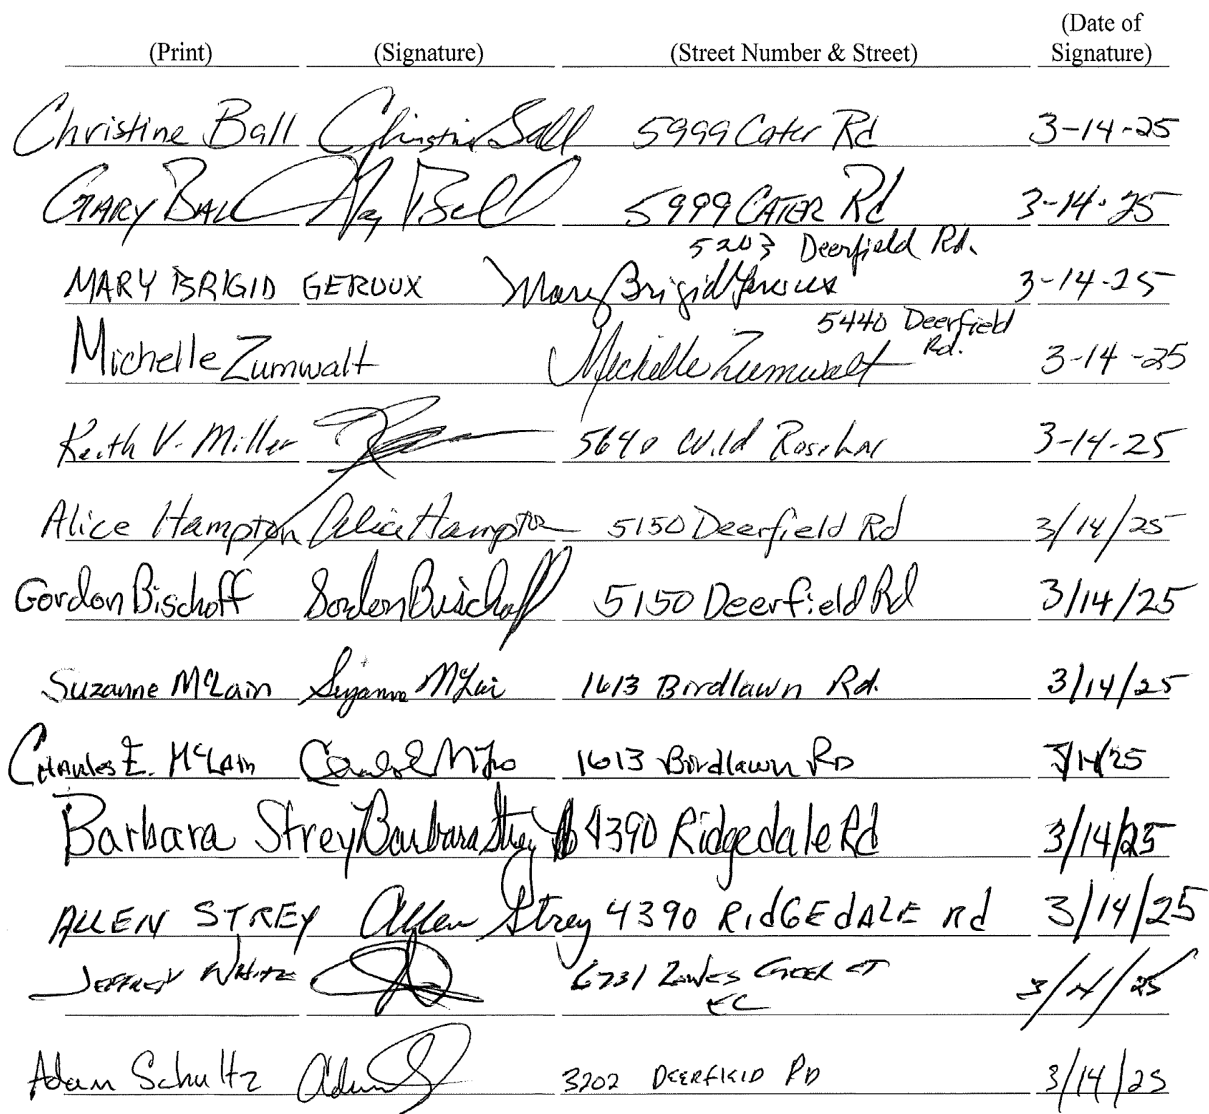 (Print) (Signature) (Street Number & Street) (Date of Signature)
Christine Ball Christine Ball 5999 Cater Rd 3-14-25
GARY BALL Gary Ball 5999 CATER Rd 3-14-25
5203 Deerfield Rd.
MARY BRIGID GEROUX Mary Brigid Geroux 3-14-25
5440 Deerfield Rd.
Michelle Zumwalt Michelle Zumwalt 3-14-25
Keith V. Miller 5640 Wild Rose 3-14-25
Alice Hampton Alice Hampton 5150 Deerfield Rd 3/14/25
Gordon Bischoff Gordon Bischoff 5150 Deerfield Rd 3/14/25
Suzanne McLain Suzanne McLain 1613 Birdlawn Rd. 3/14/25
Charles E. McLain 1613 Birdlawn RD 3/14/25
Barbara Strey Barbara Strey 4390 Ridgedale Rd 3/14/25
ALLEN STREY Allen Strey 4390 RIdGEdALE Rd 3/14/25
JEFFREY WHITE 6731 CREEK CT 3/14/25
EC
Adam Schultz Adam 3202 DEERFIELD RD 3/14/25